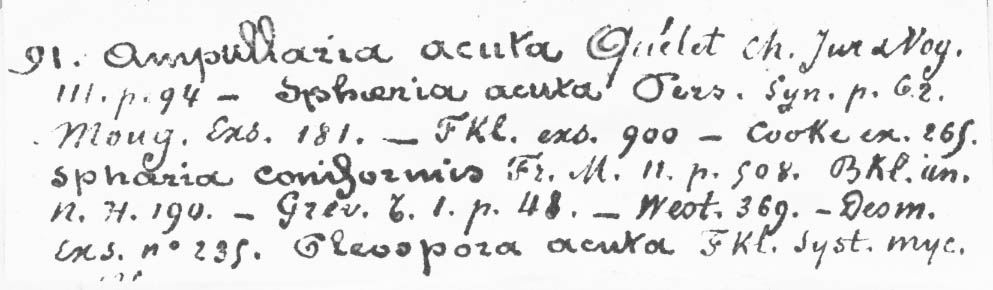 91. Ampullaria acuta Quélet Ch. Jur & Vog.
III. p. 94 – Sphœria acuta Pers. Syn. p. 62.
Moug. Exs. 181. – FKl. exs. 900 – Cooke ex. 265.
Sphæria coniformis Fr. M. 11. p. 508. BKl. un.
N. H. 190. – Grev. t. 1. p. 48. – West. 369. – Desm.
Exs. n° 235. Pleospora acuta FKl. Syst. myc.